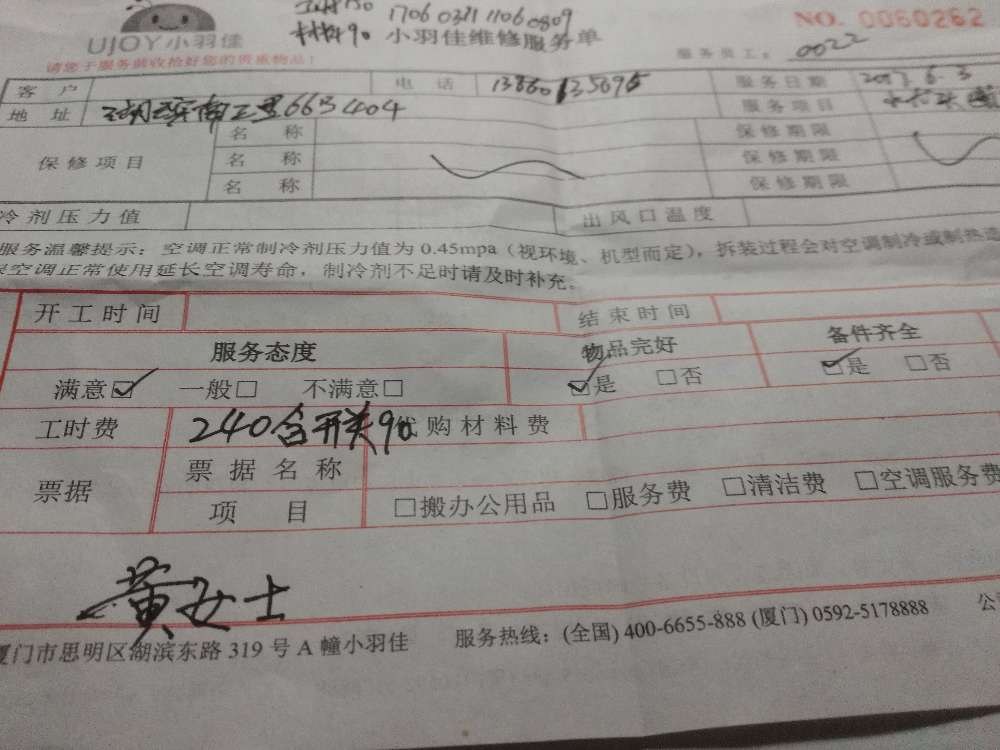 工时150 1706 0321 1106 0809 NO. 0060262
UJOY小羽佳 材料90 小羽佳维修服务单
请您于服务前收拾好您的贵重物品! 服务员工: 0022
客 户 电 话 服务日期 2017.6.3
地 址 湖滨南三里663404 服务项目
保修项目 名 称 保修期限
名 称 保修期限
名 称 保修期限
冷剂压力值 出风口温度
服务温馨提示: 空调正常制冷剂压力值为 0.45mpa (视环境、机型而定), 拆装过程会对空调制冷或制热造
保空调正常使用延长空调寿命, 制冷剂不足时请及时补充。
开工时间 结束时间
服务态度 物品完好 备件齐全
满意☑ 一般□ 不满意□ ☑是 □否 ☑是 □否
工时费 240含开关90 代购材料费
票据 票据名称
项 目 □搬办公用品 □服务费 □清洁费 □空调服务费
黄女士
厦门市思明区湖滨东路 319 号 A 幢小羽佳 服务热线: (全国) 400-6655-888 (厦门) 0592-5178888 公